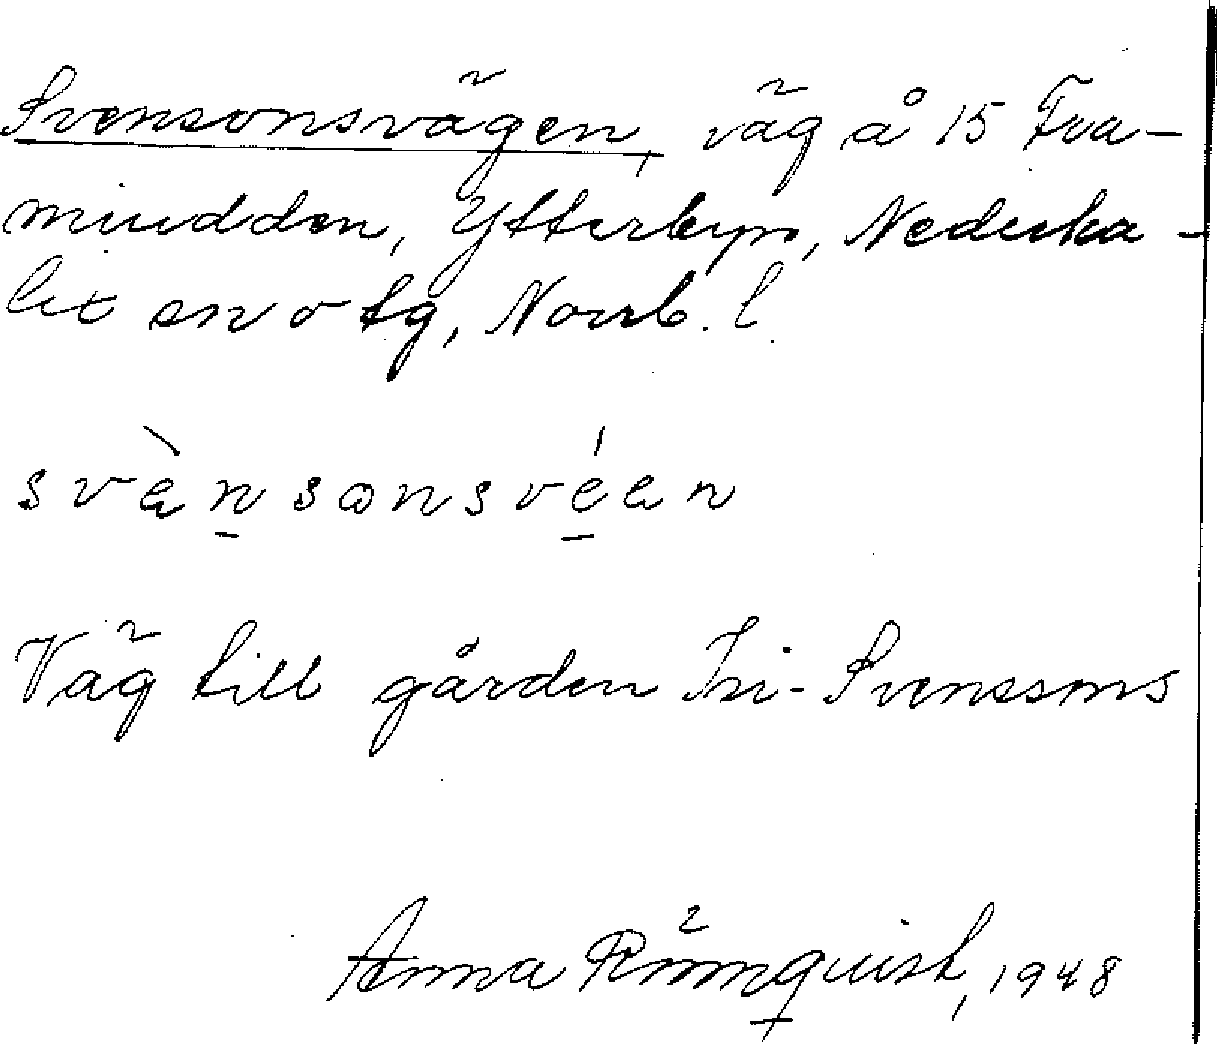 Svensonsvägen, väg å 15 Fra-
mudden, Ytterbyn, Nederka-
lix sn o tg, Norrb. l.
svènsonsvéen
Väg till gården Svenssons
Anna Rönnquist, 1948